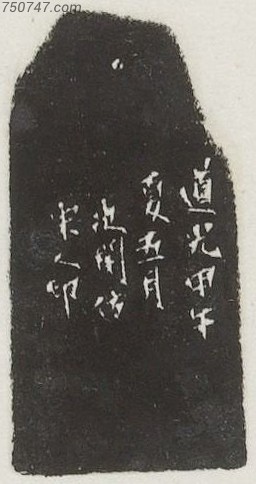 750747.com
道光甲午
夏五月
次閑仿
宋人印